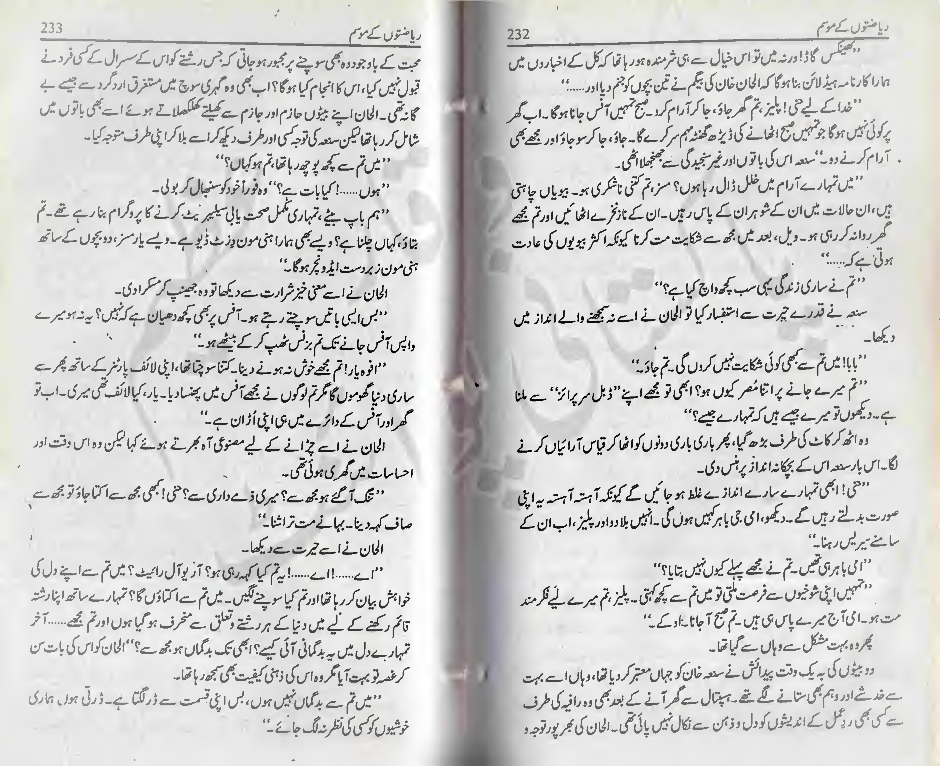 ریاضتوں کے موسم 232
”تھینکس گاڈ! ورنہ میں تو اس خیال سے ہی شرمندہ ہو رہا تھا کہ کل کے اخباروں میں
ہمارا کارنامہ ہیڈ لائن بنا ہوگا کہ الحان خان کی بیگم نے تین بچوں کو جنم دیا اور......“
”خدا کے لیے حنی! پلیز، تم گھر جاؤ، جا کر آرام کرو۔ صبح تمہیں آفس جانا ہوگا۔ اب گھر
پر کوئی نہیں ہوگا جو تمہیں صبح اٹھانے کی ڈیڑھ گھنٹہ مہم سر کرے گا۔ جاؤ، جا کر سو جاؤ اور مجھے بھی
آرام کرنے دو۔“ سنعہ اس کی باتوں اور غیر سنجیدگی سے جھنجھلا اٹھی۔
”میں تمہارے آرام میں خلل ڈال رہا ہوں؟ مسز، تم کتنی ناشکری ہو۔ بیویاں چاہتی
ہیں، ان حالات میں ان کے شوہر ان کے پاس رہیں۔ ان کے ناز نخرے اٹھائیں اور تم مجھے
گھر روانہ کر رہی ہو۔ ویل، بعد میں مجھ سے شکایت مت کرنا کیونکہ اکثر بیویوں کی عادت
ہوتی ہے کہ......“
”تم نے ساری زندگی یہی سب کچھ واچ کیا ہے؟“
سنعہ نے قدرے حیرت سے استفسار کیا تو الحان نے اسے نہ سمجھنے والے انداز میں
دیکھا۔
”بابا! میں تم سے کبھی کوئی شکایت نہیں کروں گی۔ تم جاؤ۔“
”تم میرے جانے پر اتنا مُصر کیوں ہو؟ ابھی تو مجھے اپنے ”ڈبل سرپرائز“ سے ملنا
ہے۔ دیکھوں تو میرے جیسے ہیں کہ تمہارے جیسے؟“
وہ اٹھ کر کاٹ کی طرف بڑھ گیا، پھر باری باری دونوں کو اٹھا کر قیاس آرائیاں کرنے
لگا۔ اس بار سنعہ اس کے بچکانہ انداز پر ہنس دی۔
”حنی! ابھی تمہارے سارے اندازے غلط ہو جائیں گے کیونکہ آہستہ آہستہ یہ اپنی
صورت بدلتے رہیں گے۔ دیکھو، امی جی باہر کہیں ہوں گی۔ انہیں بلا دو اور پلیز، اب ان کے
سامنے سیریس رہنا۔“
”امی باہر ہی تھیں۔ تم نے مجھے پہلے کیوں نہیں بتایا؟“
”تمہیں اپنی شوخیوں سے فرصت ملتی تو میں تم سے کچھ کہتی۔ پلیز، تم میرے لیے فکر مند
مت ہو۔ امی آج میرے پاس ہی ہیں۔ تم صبح آ جانا۔ او کے۔“
پھر وہ بہت مشکل سے وہاں سے گیا تھا۔
دو بیٹوں کی بہ یک وقت پیدائش نے سنعہ خان کو جہاں معتبر کر دیا تھا، وہاں اسے بہت
سے خدشے اور وہم بھی ستانے لگے تھے۔ ہسپتال سے گھر آنے کے بعد بھی وہ رافیہ کی طرف
سے کسی بھی ردِعمل کے اندیشوں کو دل و ذہن سے نکال نہیں پائی تھی۔ الحان کی بھرپور توجہ و
ریاضتوں کے موسم 233
محبت کے باوجود وہ بھی سوچنے پر مجبور ہو جاتی کہ جس رشتے کو اس کے سسرال کے کسی فرد نے
قبول نہیں کیا، اس کا انجام کیا ہوگا؟ اب بھی وہ گہری سوچ میں مستغرق اردگرد سے جیسے بے
گانہ تھی۔ الحان اپنے بیٹوں حازم اور جازم سے کھیلتے کھلکھلاتے ہوئے اسے بھی باتوں میں
شامل کر رہا تھا لیکن سنعہ کی توجہ کسی اور طرف دیکھ کر اسے ہلا کر اپنی طرف متوجہ کیا۔
”میں تم سے کچھ پوچھ رہا تھا، تم ہو کہاں؟“
”ہوں......! کیا بات ہے؟“ وہ فوراً خود کو سنبھال کر بولی۔
”ہم باپ بیٹے، تمہاری مکمل صحت یابی سیلیبریٹ کرنے کا پروگرام بنا رہے تھے۔ تم
بتاؤ، کہاں چلنا ہے؟ ویسے بھی ہمارا ہنی مون وزٹ ڈیو ہے۔ ویسے یار مسز، دو بچوں کے ساتھ
ہنی مون زبردست ایڈونچر ہوگا۔“
الحان نے اسے معنی خیز شرارت سے دیکھا تو وہ جھینپ کر مسکرا دی۔
”بس ایسی باتیں سوچتے رہتے ہو۔ آفس پر بھی کچھ دھیان ہے کہ نہیں؟ یہ نہ ہو میرے
واپس آفس جانے تک تم بزنس ٹھپ کر کے بیٹھے ہو۔“
”افوہ یار! تم مجھے خوش نہ ہونے دینا۔ کتنا سوچتا تھا، اپنی لائف پارٹنر کے ساتھ پھر سے
ساری دنیا گھوموں گا مگر تم لوگوں نے مجھے آفس میں پھنسا دیا۔ یار، کیا لائف تھی میری۔ اب تو
گھر اور آفس کے دائرے میں ہی اپنی اُڑان ہے۔“
الحان نے اسے چڑانے کے لیے مصنوعی آہ بھرتے ہوئے کہا لیکن وہ اس وقت اور
احساسات میں گھری ہوئی تھی۔
”تنگ آ گئے ہو مجھ سے؟ میری ذمے داری سے؟ حنی! کبھی مجھ سے اکتا جاؤ تو مجھ سے
صاف کہہ دینا۔ بہانے مت تراشنا۔“
الحان نے اسے حیرت سے دیکھا۔
”اے......! اے......! یہ تم کیا کہہ رہی ہو؟ آر یو آل رائیٹ؟ میں تم سے اپنے دل کی
خواہش بیان کر رہا تھا اور تم کیا سوچنے لگیں۔ میں تم سے اکتاؤں گا؟ تمہارے ساتھ اپنا رشتہ
قائم رکھنے کے لیے میں دنیا کے ہر رشتے، تعلق سے منحرف ہو گیا ہوں اور تم مجھے...... آخر
تمہارے دل میں یہ بدگمانی آئی کیسے؟ ابھی تک بدگماں ہو مجھ سے؟“ الحان کو اس کی بات سن
کر غصہ تو بہت آیا مگر وہ اس کی ذہنی کیفیت بھی سمجھ رہا تھا۔
”میں تم سے بدگماں نہیں ہوں، بس اپنی قسمت سے ڈر لگتا ہے۔ ڈرتی ہوں ہماری
خوشیوں کو کسی کی نظر نہ لگ جائے۔“